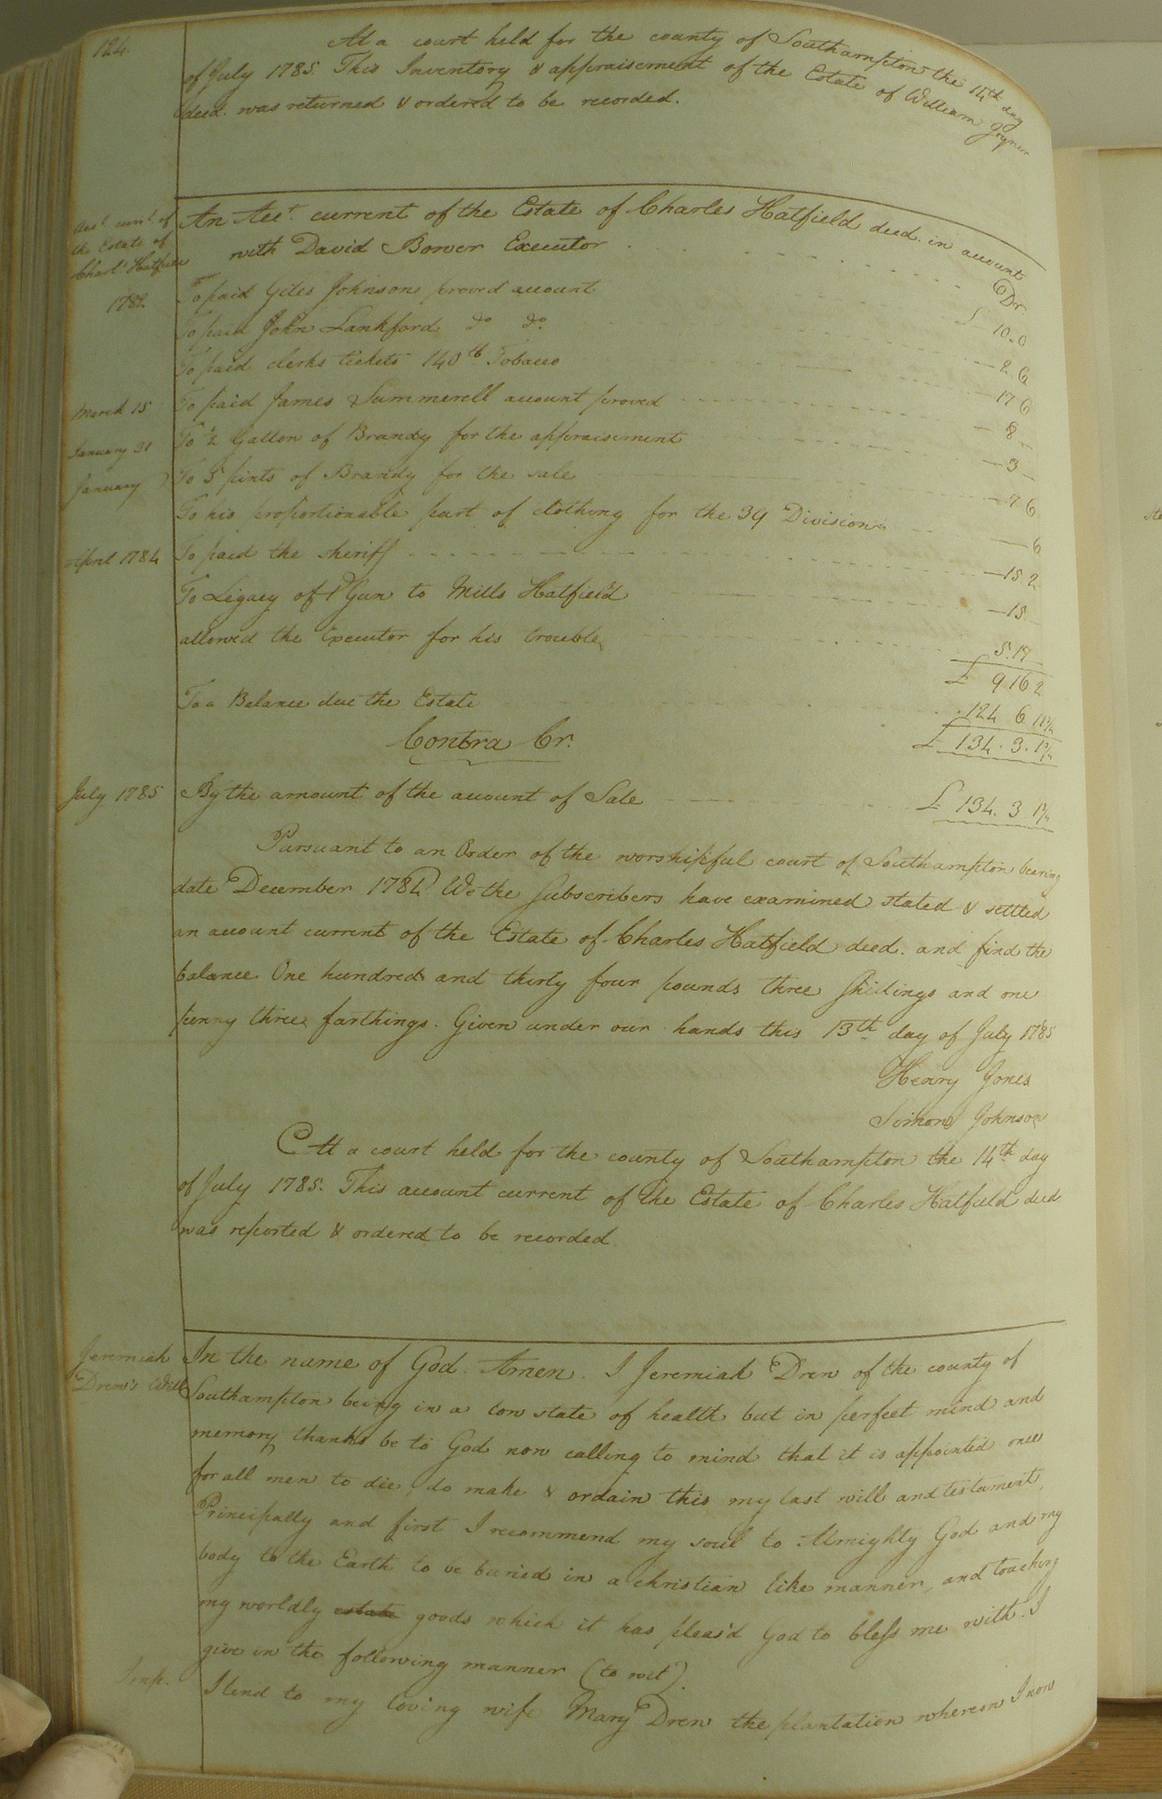 124.
At a court held for the county of Southampton the 14th day
of July 1785. This Inventory & appraisement of the Estate of William Joyner
decd. was returned & ordered to be recorded.
Acct. curt. of
the Estate of
Charls Hatfield
An Acct. current of the Estate of Charles Hatfield decd. in account
with David Bower Executor Dr.
1782 To paid Giles Johnsons proved account £ 10.0
To paid John Lankford do do. 2.6
To paid clerks tickets 140 lb Tobacco 17 6
March 15 To paid James Summerell account proved 8
January 31 To ½ Gallon of Brandy for the appraisement 3
January To 5 pints of Brandy for the sale 7 6
To his proportionable part of clothing for the 39 Division 6
April 1784 To paid the sheriff 15 2
To Legacy of 1 Gun to Mills Hatfield 15
allowed the Executor for his trouble 5.17
£ 9 16 2
To a Balance due the Estate 124 6 11¾
£ 134. 3. 1¾
Contra Cr.
July 1785 By the amount of the account of Sale £ 134. 3 1¾
Pursuant to an Order of the worshipful court of Southampton bearing
date December 1784 We the Subscribers have examined stated & settled
an account current of the Estate of Charles Hatfield decd. and find the
balance One hundred and thirty four pounds three shillings and one
penny three farthings. Given under our hands this 13th day of July 1785
Henry Jones
Simon Johnson
At a court held for the county of Southampton the 14th day
of July 1785. This account current of the Estate of Charles Hatfield decd
was reported & ordered to be recorded.
Jeremiah
Drew's Will
In the name of God Amen. I Jeremiah Drew of the county of
Southampton being in a low state of health but in perfect mind and
memory thanks be to God now calling to mind that it is appointed once
for all men to die, do make & ordain this my last will and testament,
Principally and first I recommend my soul to Almighty God and my
body to the Earth to be buried in a christian like manner, and touching
my worldly estate goods which it has pleas'd God to bless me with. I
give in the following manner (to wit).
Imp. I lend to my loving wife Mary Drew the plantation whereon I now